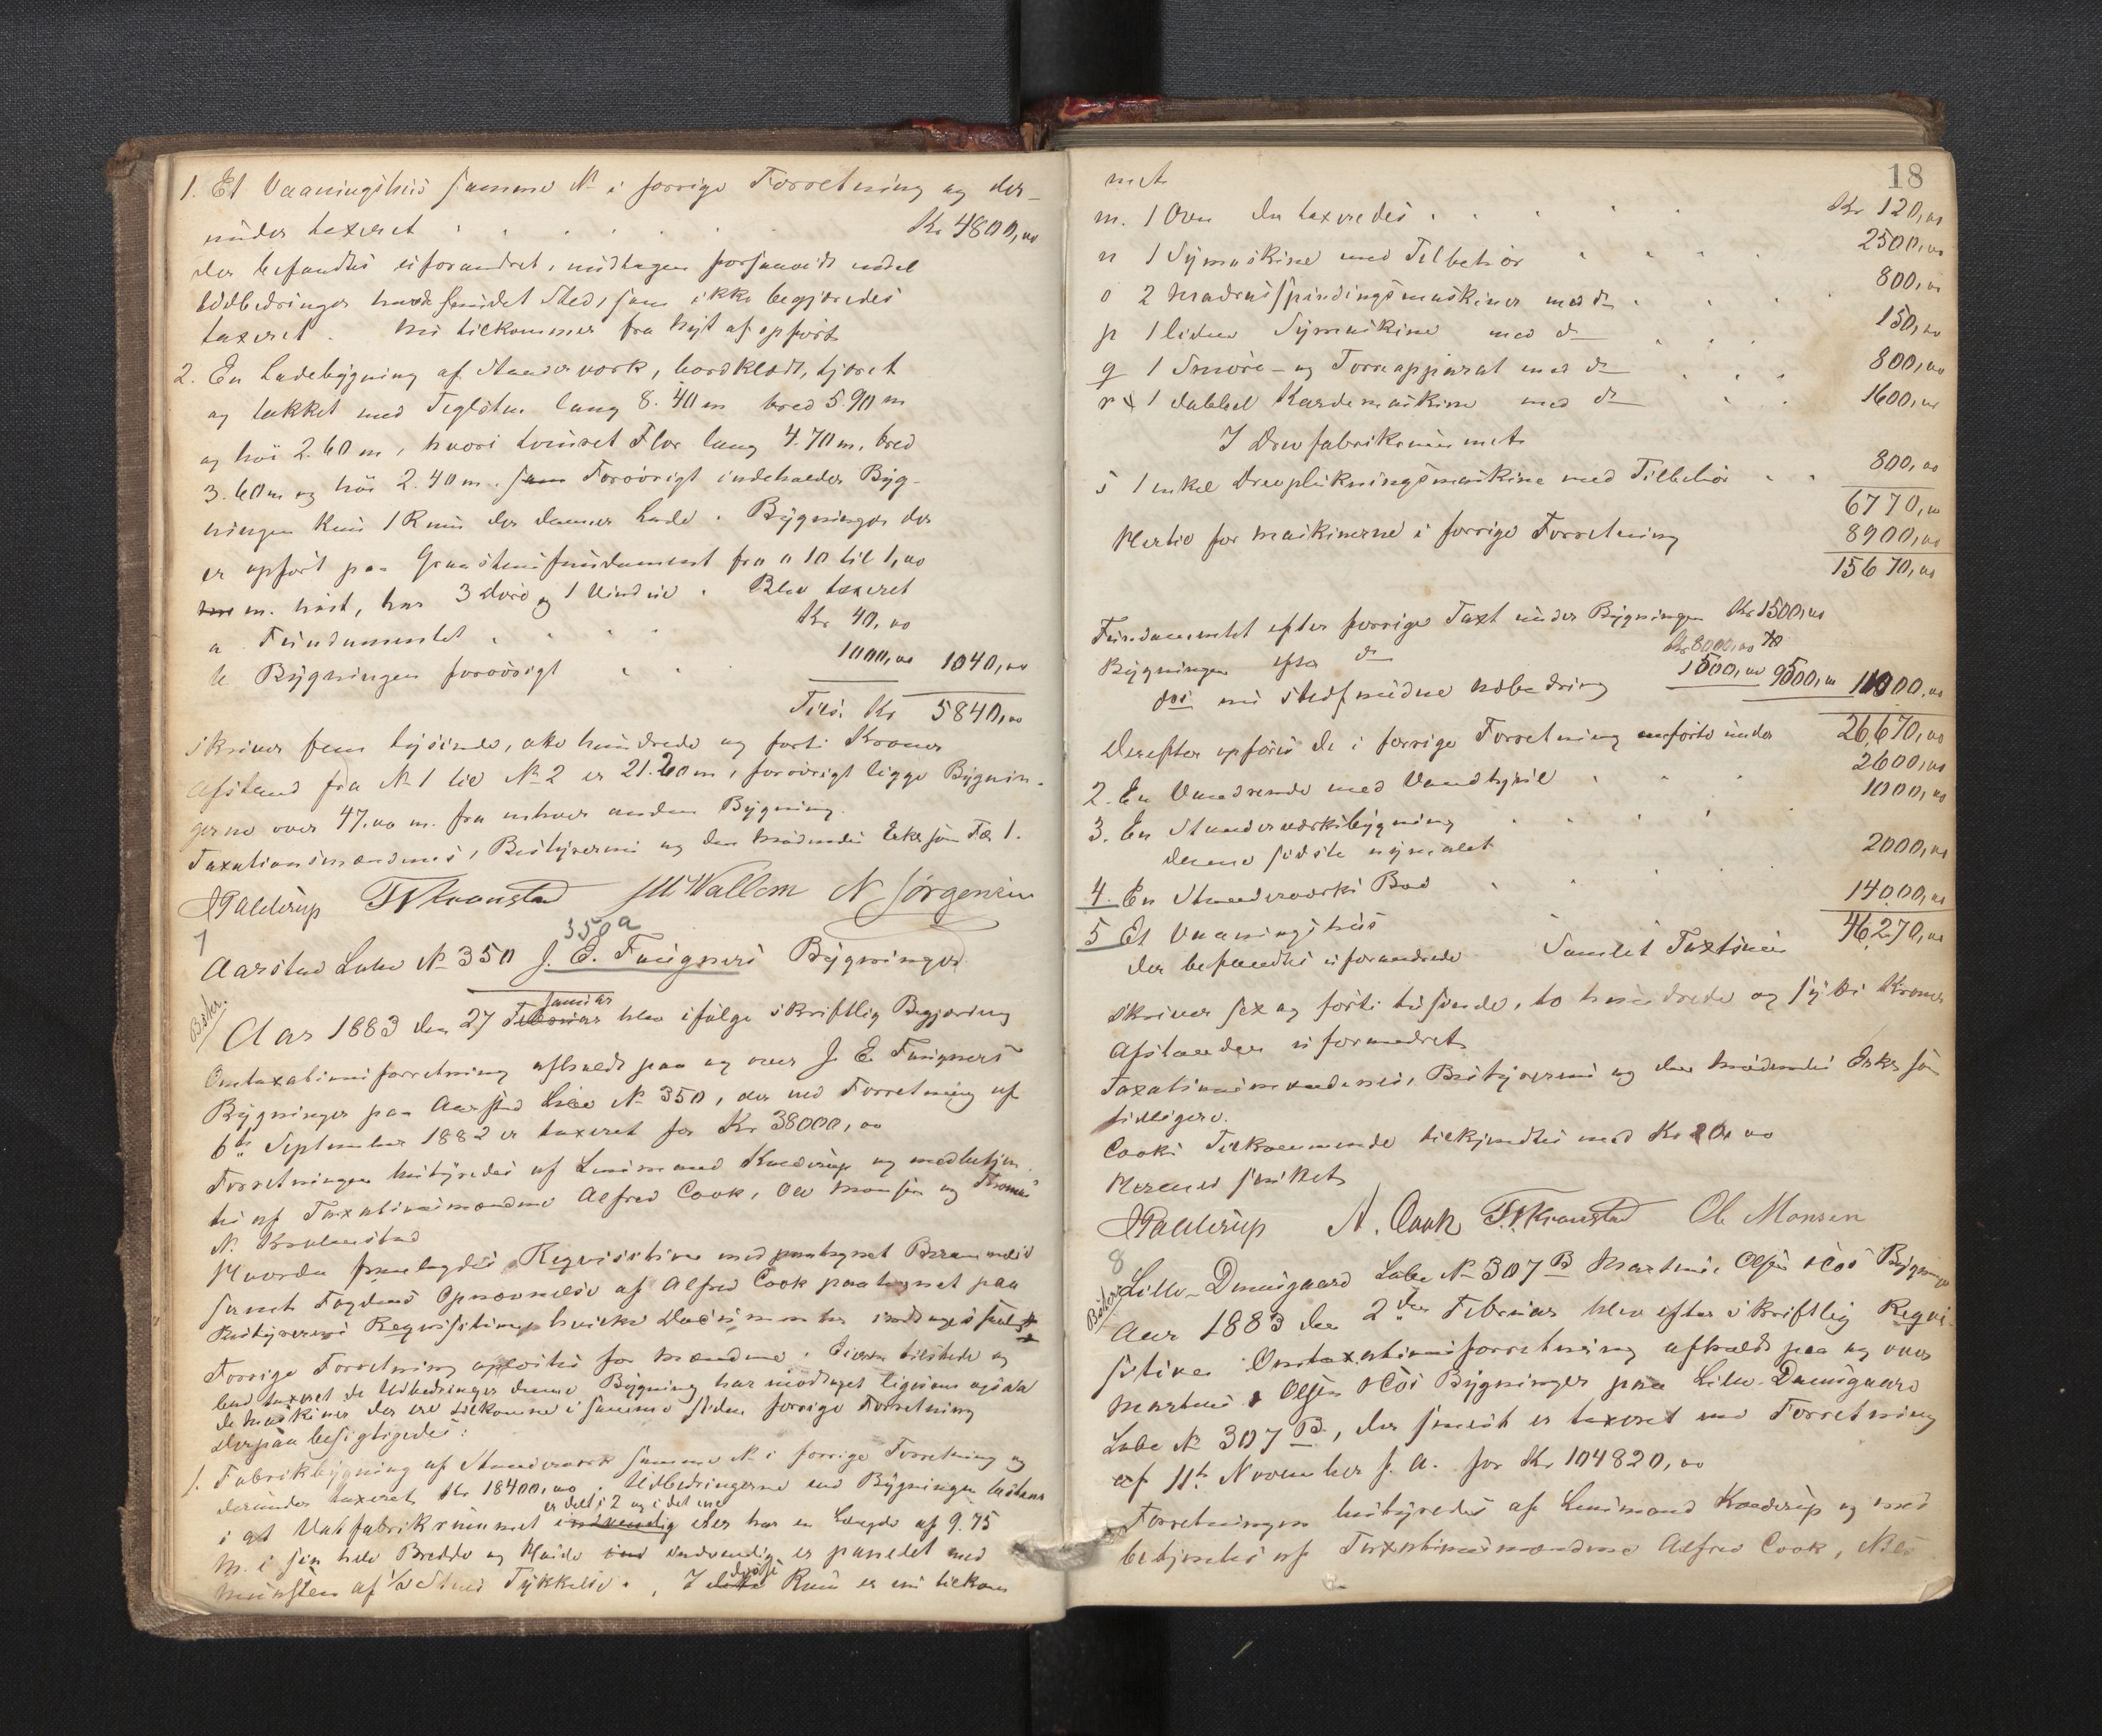 1. Et Vaaningshus samme No i forrige Forretning og der-
under taxeret Kr 4800,00
der befandtes uforandret, undtagen forsaavidt endel
Udbedringer havde fundet Sted, som ikke begjæredes
taxeret. Nu tilkommer fra Nyt af opført
2. En Ladebygning af Standerværk, bordklædt, tjæret
og tækket med Teglsten lang 8.40 m bred 5.90 m
og høi 2.60 m, hvori tømret Flor lang 4.70 m, bred
3.60 m og høi 2.40 m. Forøvrigt indeholder Byg-
ningen kun 1 Rum der danner Lade. Bygningen der
er opført paa Graastensfundament fra 0 10 til 1,00
m. høit, har 3 Døre og 1 Vindue. Blev taxeret
a Fundamentet Kr 40,00
b Bygningen forøvrigt 1000,00 1040,00
Tils. Kr 5840,00
skriver fem tusinde, otte hundrede og forti Kroner
Afstand fra No 1 til No 2 er 21.20 m, forøvrigt ligge Bygnin-
gerne over 47,00 m. fra enhver anden Bygning.
Taxationsmændenes, Bestyrerens og den mødendes Ærke som Fol 1.
JKalderup TNKronstad JMWallem N Jørgensen
7 350a
Aarstad Lube No 350 J. E. Fuigners Bygninger.
Bøker.
Januar
Aar 1883 den 27 Februar blev ifølge skriftlig Begjæring
Omtaxationsforretning afholdt paa og over J. E. Fuigners
Bygninger paa Aarstad Lube No 350, der ved Forretning af
6te September 1882 er taxeret for Kr 38000,00
Forretningen bestyredes af Lensmand Kalderup og medbetjen-
tes af Taxationsmændene Alfred Cook, Ole Monsen og Thomas
N. Kronstad
Hvorda fremlagdes Reqvisition med paategnet Berammelse
samt Fogdens Opnævnelse af Alfred Cook paategnet paa
Bestyrerens Reqvisition, hvilke Documenter indtages
Forrige Forretning oplæstes for Mændene. Eieren tilstede og
lod taxeret de Udbedringer denne Bygning har modtaget ligesom ogsaa
de Maskiner der ere tilkomne i samme siden forrige Forretning
Derpaa besigtigedes:
1. Fabrikbygning af Standerværk samme No i forrige Forretning og
derunder taxeret Kr 18400,00. Udbedringerne ved Bygningen bestaar
er delt i 2 og i det ene
i at Vatfabrikrummet indvendig eller har en Længde af 9.75
m. i sin hele Bredde og Høide indvendig er panelet med
Mursten af 1/2 Stens Tykkelse. I dette Rum er nu tilkom
met
18
m. 1 Ovn der taxeredes Kr 120,00
n 1 Symaskine med Tilbehør 2500,00
o 2 Madrasspindingsmaskiner med do 800,00
p 1 liden Symaskine med do 150,00
q 1 Smøre- og Tørreapparat med do 800,00
r 1 dobbel Kardemaskine med do 1600,00
I Drevfabrikrummet
s 1 enkel Drevplukningsmaskine med Tilbehør 800,00
6770,00
Hertil for Maskinerne i forrige Forretning 8900,00
15670,00
Fundamentet efter forrige Taxt under Bygningen Kr 1500,00
Bygningen efter do Kr 8000,00
for nu stedfundne Udbedring 1500,00 9500,00 11000,00
26,670,00
Derefter opføres de i forrige Forretning anførte under
2. En Vandrende med Vandhjul 2600,00
3. En Standerværksbygning 1000,00
denne sidste nymalet
4. En Standerværks Bod 2000,00
5 Et Vaaningshus 14000,00
der befandtes uforandrede. Samlet Taxtsum 46,270,00
skriver sex og forti tusinde, to hundrede og sytti Kroner
Afstanden uforandret
Taxationsmændenes, Bestyrerens og den mødendes Ærke som
tidligere.
Cooks Tilkommende tilkjendtes med Kr 2 00
Hermed sluttet
JKalderup A. Cook T.N.Kronstad Ole Monsen
8
Bøker
Lille-Damsgaard Lube No 307 B Martens, Olsen &Cos Bygninger
Aar 1883 den 2den Februar blev efter skriftlig Reqvi-
sition Omtaxationsforretning afholdt paa og over
Martens, Olsen &Cos Bygninger paa Lille-Damsgaard
Lube No 307 B, der senest er taxeret ved Forretning
af 11te November f. A. for Kr 104820,00
Forretningen bestyredes af Lensmand Kalderup og med
betjentes af Taxationsmændene Alfred Cook, Nils